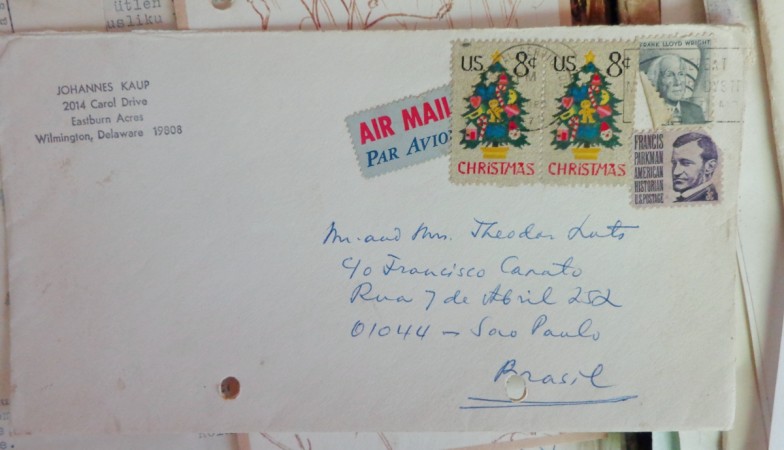 utlen
usliku
JOHANNES KAUP
2014 Carol Drive
Eastburn Acres
Wilmington, Delaware 19808
AIR MAIL
PAR AVIO
U.S. 8¢
CHRISTMAS
U.S. 8¢
CHRISTMAS
FRANK LLOYD WRIGHT
FRANCIS
PARKMAN
AMERICAN
HISTORIAN
U.S. POSTAGE
Mr. and Mrs. Theodor Luts
c/o Francisco Canato
Rua 7 de Abril 252
01044 – Sao Paulo
Brasil